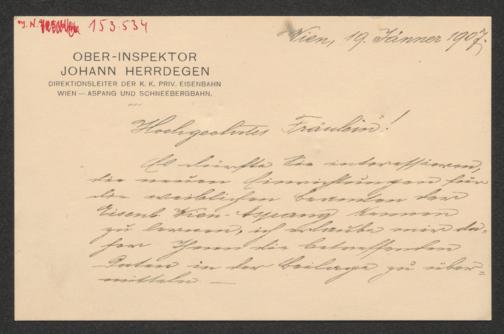 J. N. 153.534
Wien, 19. Jänner 1907.
OBER-INSPEKTOR
JOHANN HERRDEGEN
DIREKTIONSLEITER DER K. K. PRIV. EISENBAHN
WIEN — ASPANG UND SCHNEEBERGBAHN.
Hochgeehrtes Fräulein!
Es dürfte Sie interessieren,
die neuen Einrichtungen für
die weiblichen Beamten der
Eisenb Wien-Aspang kennen
zu lernen, ich erlaube mir da-
her Ihnen die betreffenden
Daten in der Beilage zu über-
mitteln —